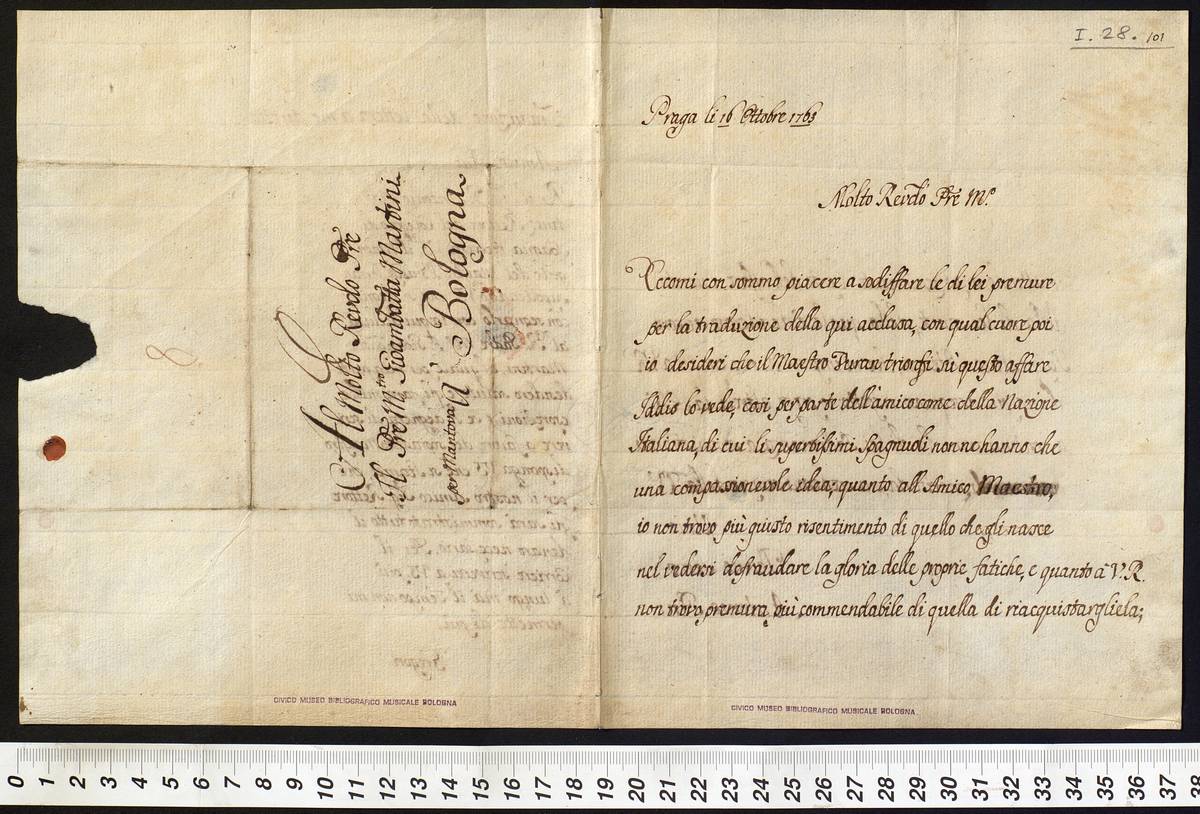 Al Molto Revdo Pre
Il Pre Mtro Gioambatta Martini
per Mantova à Bologna
8
CIVICO MUSEO BIBLIOGRAFICO MUSICALE BOLOGNA
I. 28. 101
Praga li 16 Ottobre 1763
Molto Revdo Pre Mo.
Eccomi con sommo piacere a sodiffare le di lei premure
per la traduzione della qui acclusa, con qual cuore poi
io desideri che il Maestro Duran trionfi sù questo affare
Iddio lo vede, così per parte dell'amico come della Nazione
Italiana, di cui li superbissimi Spagnuoli non ne hanno che
una compassionevole idea; quanto all'Amico, Maestro,
io non trovo più giusto risentimento di quello che gli nasce
nel vedersi defraudare la gloria delle proprie fatiche, e quanto à V. R.
non trovo premura più commendabile di quella di riacquistargliela;
CIVICO MUSEO BIBLIOGRAFICO MUSICALE BOLOGNA
0 1 2 3 4 5 6 7 8 9 10 11 12 13 14 15 16 17 18 19 20 21 22 23 24 25 26 27 28 29 30 31 32 33 34 35 36 37 38